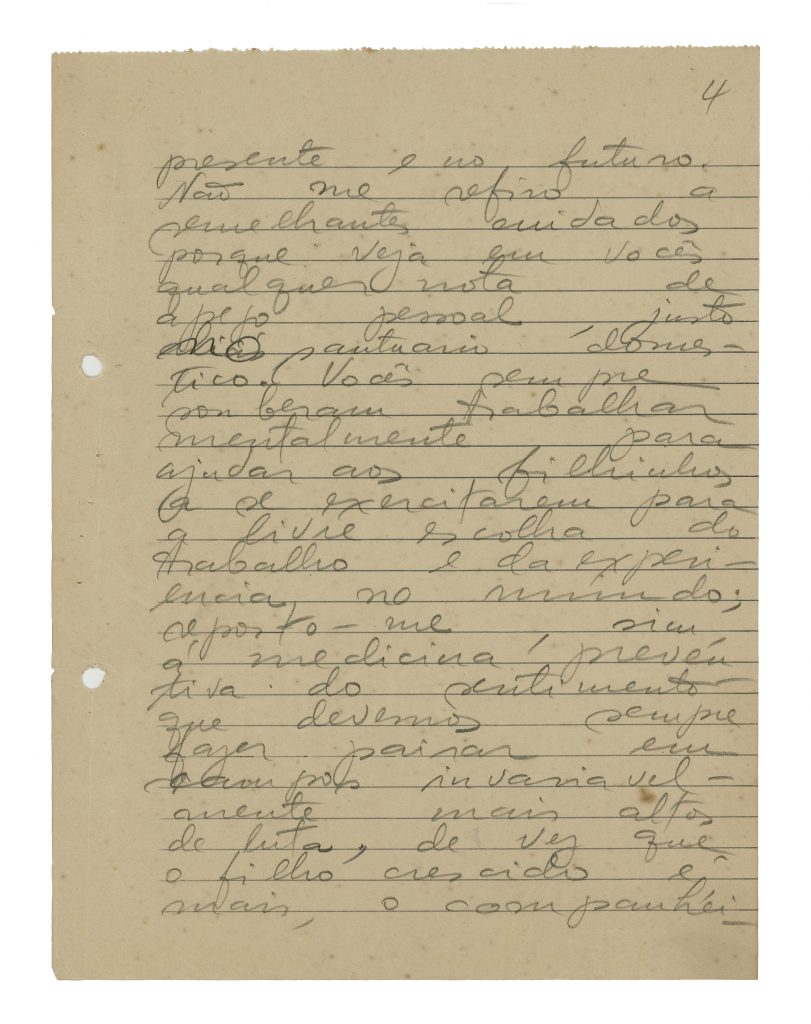 4
presente e no futuro.
Não me refiro a
semelhantes cuidados
porque veja em vocês
qualquer nota de
apego pessoal, justo
no santuario domes-
tico. Vocês sempre
souberam trabalhar
mentalmente para
ajudar aos filhinhos
a se exercitarem para
a livre escolha do
trabalho e da experi-
encia, no mundo;
reporto-me, sim
á medicina preven
tiva do sentimento
que devemos sempre
fazer pairar em
campos invariavel-
mente mais altos
de luta, de vez que
o filho crescido é
mais, o companhei-